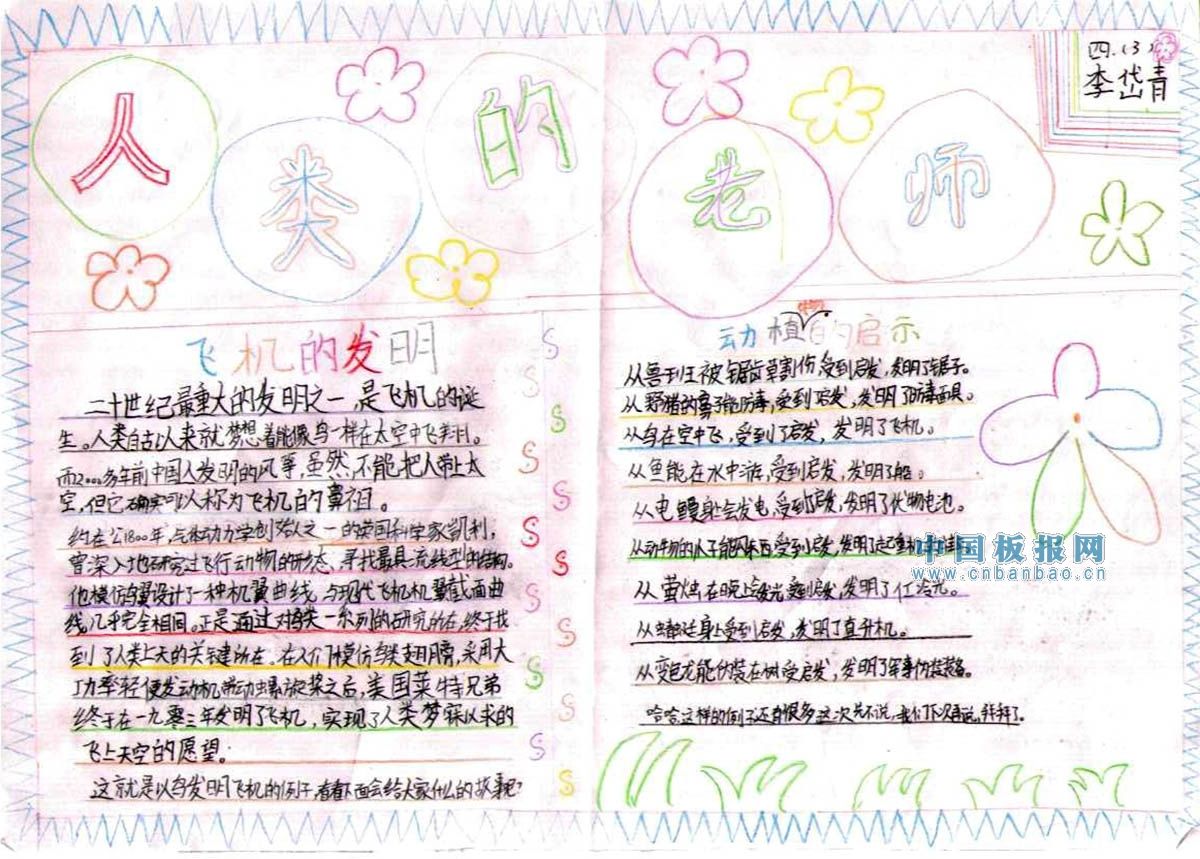 人类的老师
四.(3)
李岱青
飞机的发明
二十世纪最重大的发明之一,是飞机的诞
生。人类自古以来就梦想着能像鸟一样在太空中飞翔。
而2000多年前中国人发明的风筝,虽然,不能把人带上太
空,但它确实可以称为飞机的鼻祖。
约在公1800年,气体动力学创始人之一的英国科学家凯利,
曾深入地研究过飞行动物的形态、寻找最具流线型的结构。
他模仿鸟翼设计了一种机翼曲线,与现代飞机机翼截面曲
线几乎完全相同。正是通过对鸟类一系列的研究所在,终于找
到了人类上天的关键所在。在人们模仿鸟类翅膀,采用大
功率轻便发动机带动螺旋桨之后,美国莱特兄弟
终于在一九零三年发明了飞机,实现了人类梦寐以求的
飞上天空的愿望.
这就是以鸟发明飞机的例子,看看下面会给大家什么的故事呢?
动植物的启示
从鲁于王被锯齿草割伤,受到启发,发明了锯子。
从野猪的鼻子能防毒,受到启发,发明了防毒面具。
从鸟在空中飞,受到了启发,发明了飞机。
从鱼能在水中游,受到启发,发明了船。
从电鳗身会发电,受到启发,发明了伏特电池。
从动物的爪子能抓东西受到启发,发明了起重机
从萤火虫在晚上发光,受到启发,发明了人工冷光。
从蜻蜓身上受到启发,发明了直升机。
从变色龙能伪装在树受启发,发明了军事伪装装备。
哈哈这样的例子还有很多这次先不说,我们下次再说,拜拜了。
中国板报网
www.cnbanbao.cn